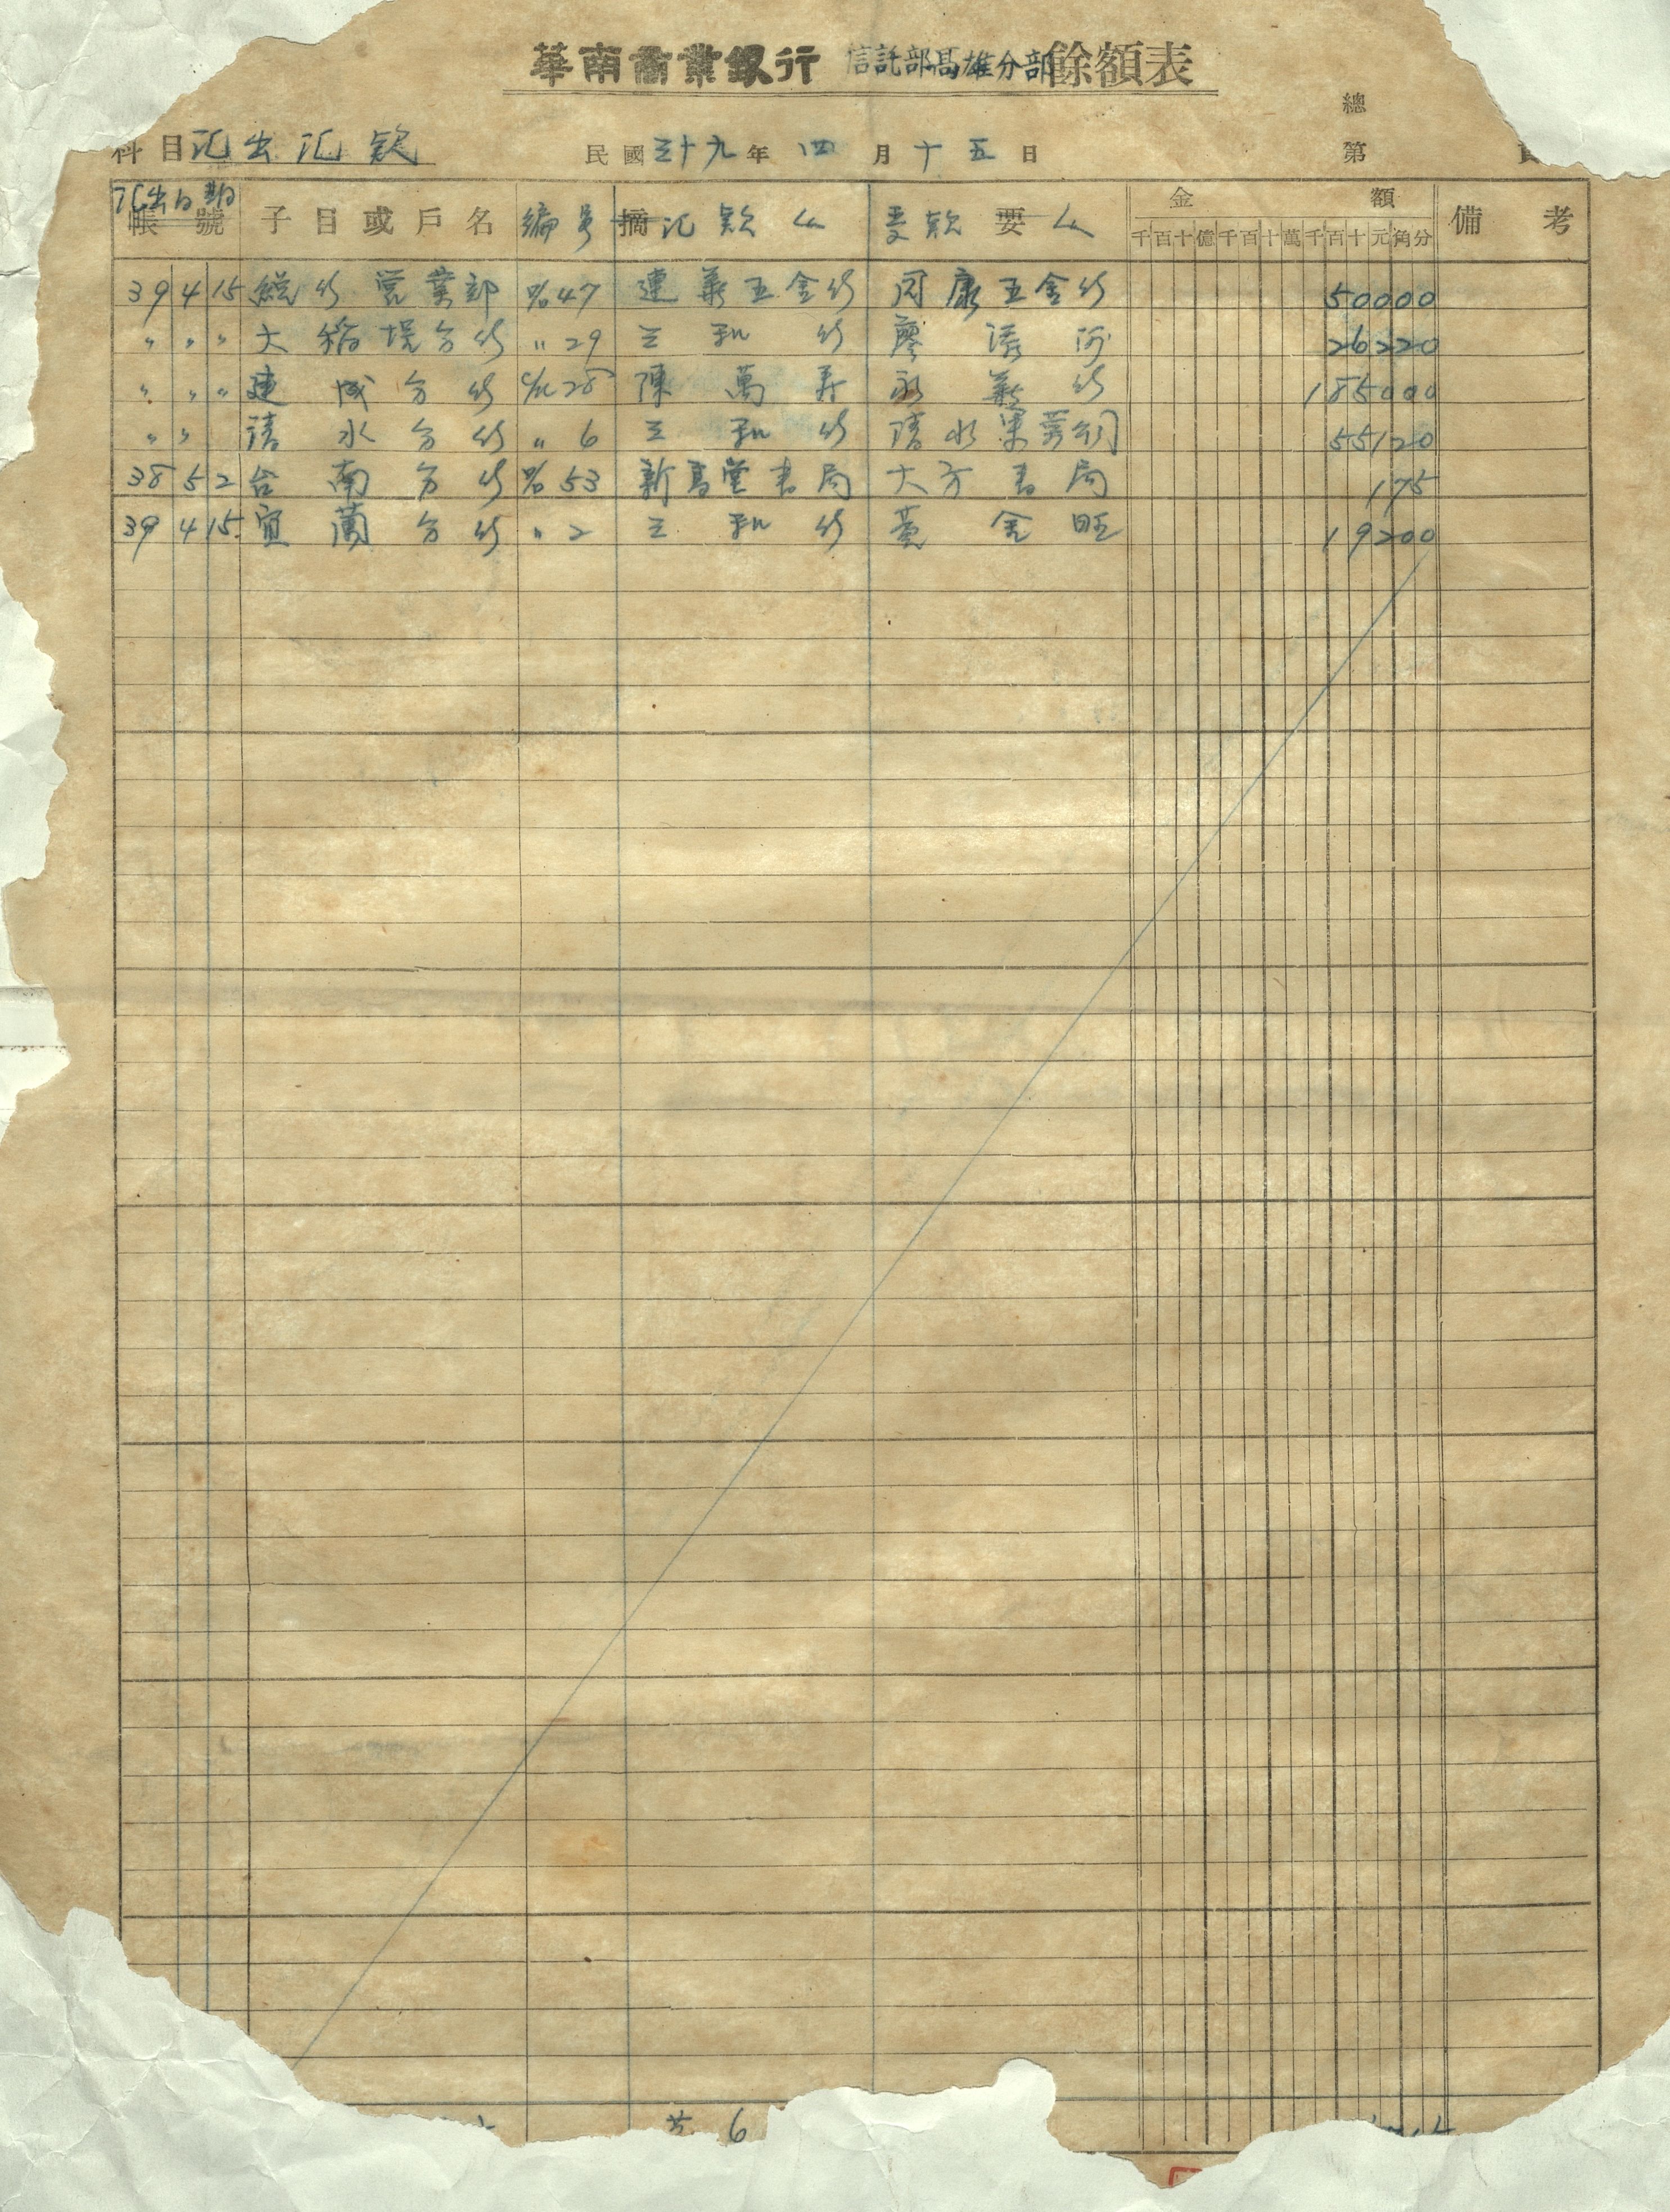 華南商業銀行 信託部高雄分部 餘額表
總
科目 汇出汇款 民國三十九年 四 月十五日 第
汇出日期 金 額
帳號 子目或戶名 編号 摘 汇款人 受款 要 人 千百十億千百十萬千百十元角分 備考
39 4 15 総行営業部 47 連義五金行 同康五金行 50000
〃 〃 〃 大稻埕分行 〃 29 三和行 廖 26220
〃 〃 〃 建成分行 28 陳萬寿 永義行 185000
〃 〃 清水分行 〃 6 三和行 清水 55120
38 5 2 台南分行 53 新高堂書局 大方書局 175
39 4 15 宜蘭分行 〃 2 三和行 黄金旺 19200
共 6